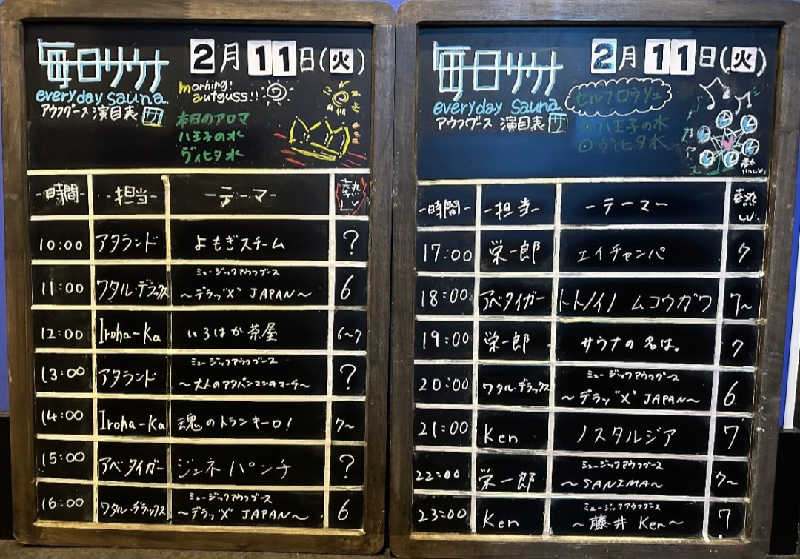 毎日サウナ
2月11日(火)
everyday sauna
アウフグース 演目表 サ
morning!
aufguss!!
本日のアロマ
八王子の水
ヴィヒタ水
-時間- -担当- -テーマ- 熱いLV.
10:00 アタランド よもぎスチーム ?
ミュージックアウフグース
11:00 ワタル・デラックス ～デラッ"X" JAPAN～ 6
12:00 Iroha-Ka いろはか茶屋 6～7
ミュージックアウフグース
13:00 アタランド ?
14:00 Iroha-Ka 魂のトランキーロ! 7～
15:00 アベタイガー ジュネパンチ ?
ミュージックアウフグース
16:00 ワタル・デラックス ～デラッ"X" JAPAN～ 6
毎日サウナ
2月11日(火)
everyday sauna
アウフグース 演目表 サ
セルフロウリュ
八王子の水
ヴィヒタ水
-時間- -担当- -テーマ- 熱LV.
17:00 栄一郎 エイチャンパ 7
18:00 アベタイガー トトノイノ ムコウガワ 7～
19:00 栄一郎 サウナの名は。 7
ミュージックアウフグース
20:00 ワタル・デラックス ～デラッ"X" JAPAN～ 6
21:00 Ken ノスタルジア 7
ミュージックアウフグース
22:00 栄一郎 ～SANIMA～ 7～
ミュージックアウフグース
23:00 Ken ～藤井 Ken～ 7